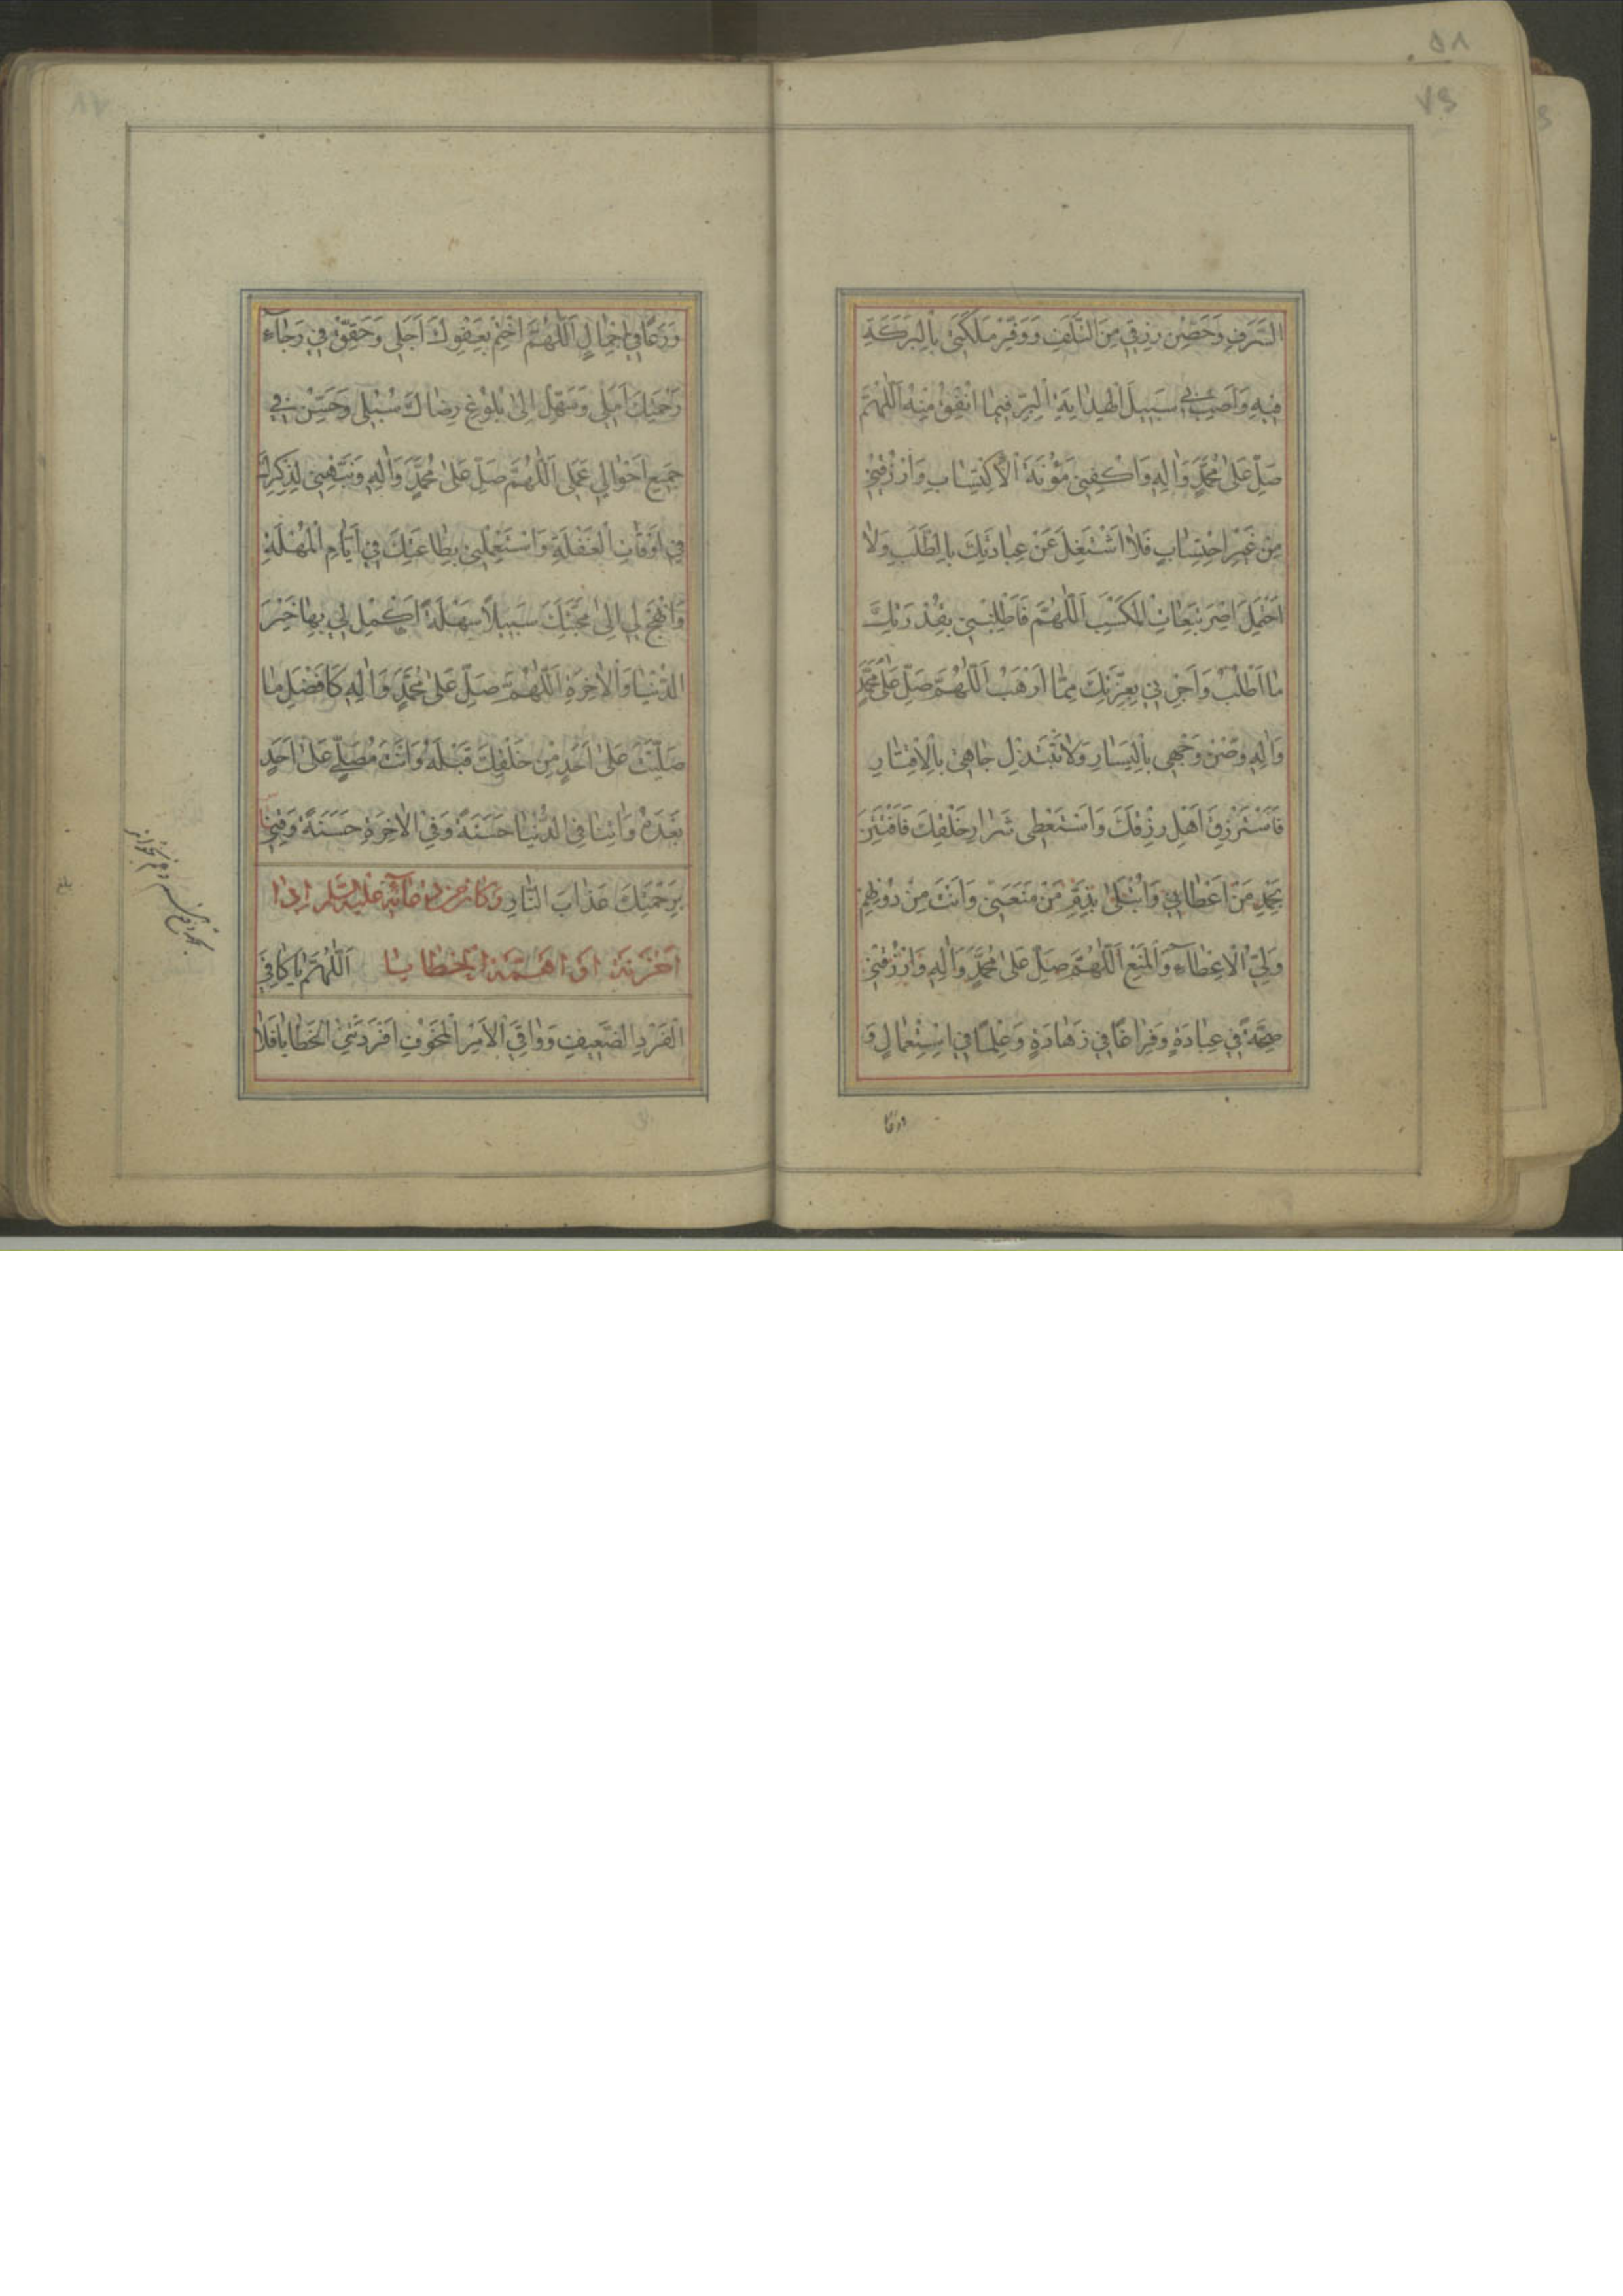 السَّرَفِ وَحَصِّنْ رِزْقي مِنَ التَّلَفِ وَوَفِّرْ مَلَكَتي بِالْبَرَكَةِ
فيهِ وَاَصِبْ بي سَبيلَ الْهِدايَةِ لِلْبِرِّ فيما اُنْفِقُ مِنْهُ اَللّٰهُمَّ
صَلِّ عَلىٰ مُحَمَّدٍ وَاٰلِهِ وَاكْفِني مَؤُنَةَ الْاِكْتِسابِ وَارْزُقْني
مِنْ غَيْرِ احْتِسابٍ فَلا اَشْتَغِلَ عَنْ عِبادَتِكَ بِالطَّلَبِ وَلا
اَحْتَمِلَ اِصْرَ تَبِعاتِ الْمَكْسَبِ اَللّٰهُمَّ فَاَطْلِبْني بِقُدْرَتِكَ
ما اَطْلُبُ وَاَجِرْني بِعِزَّتِكَ مِمّا اَرْهَبُ اَللّٰهُمَّ صَلِّ عَلىٰ مُحَمَّدٍ
وَاٰلِهِ وَصُنْ وَجْهي بِالْيَسارِ وَلا تَبْتَذِلْ جاهي بِالْاِقْتارِ
فَاَسْتَرْزِقَ اَهْلَ رِزْقِكَ وَاَسْتَعْطِيَ شِرارَ خَلْقِكَ فَاَفْتَتِنَ
بِحَمْدِ مَنْ اَعْطاني وَاُبْتَلىٰ بِذَمِّ مَنْ مَنَعَني وَاَنْتَ مِنْ دُونِهِمْ
وَلِيُّ الْاِعْطاءِ وَالْمَنْعِ اَللّٰهُمَّ صَلِّ عَلىٰ مُحَمَّدٍ وَاٰلِهِ وَارْزُقْني
صِحَّةً في عِبادَةٍ وَفَراغًا في زَهادَةٍ وَعِلْمًا في اسْتِعْمالٍ وَ
وَرَعًا
وَوَرَعًا في اِجْمالٍ اَللّٰهُمَّ اخْتِمْ بِعَفْوِكَ اَجَلي وَحَقِّقْ في رَجاءِ
رَحْمَتِكَ اَمَلي وَسَهِّلْ اِلىٰ بُلُوغِ رِضاكَ سُبُلي وَحَسِّنْ في
جَميعِ اَحْوالي عَمَلي اَللّٰهُمَّ صَلِّ عَلىٰ مُحَمَّدٍ وَاٰلِهِ وَنَبِّهْني لِذِكْرِكَ
في اَوْقاتِ الْغَفْلَةِ وَاسْتَعْمِلْني بِطاعَتِكَ في اَيّامِ الْمُهْلَةِ
وَانْهَجْ لي اِلىٰ مَحَبَّتِكَ سَبيلًا سَهْلَةً اَكْمِلْ لي بِها خَيْرَ
الدُّنْيا وَالْاٰخِرَةِ اَللّٰهُمَّ صَلِّ عَلىٰ مُحَمَّدٍ وَاٰلِهِ كَاَفْضَلِ ما
صَلَّيْتَ عَلىٰ اَحَدٍ مِنْ خَلْقِكَ قَبْلَهُ وَاَنْتَ مُصَلٍّ عَلىٰ اَحَدٍ
بَعْدَهُ وَاٰتِنا فِي الدُّنْيا حَسَنَةً وَفِي الْاٰخِرَةِ حَسَنَةً وَقِني
بِرَحْمَتِكَ عَذابَ النّارِ وَكانَ مِنْ دُعائِهِ عَلَيْهِ السَّلام اِذا
اَحْزَنَهُ اَوْ اَهَمَّتْهُ الْخَطايا اَللّٰهُمَّ يا كافِيَ
الْفَرْدِ الضَّعيفِ وَواقِيَ الْاَمْرِ الْمَخُوفِ اَفْرَدَتْنِي الْخَطايا فَلا
بلغ